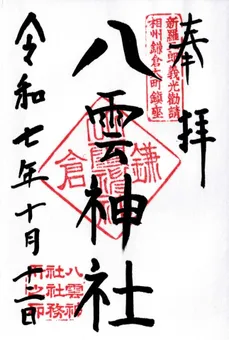 奉拝
新羅三郎義光勧請
相州鎌倉大町鎮座
八雲神社
鎌倉
八雲神
社社務
所之印
令和七年十月十二日